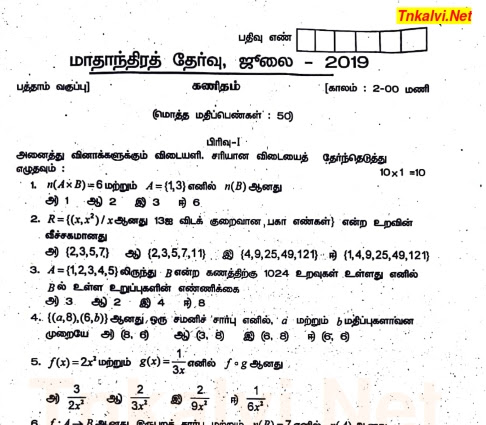 Tnkalvi.Net
பதிவு எண்
மாதாந்திரத் தேர்வு, ஜூலை - 2019
பத்தாம் வகுப்பு] கணிதம் [காலம் : 2-00 மணி
(மொத்த மதிப்பெண்கள் : 50)
பிரிவு-I
அனைத்து வினாக்களுக்கும் விடையளி. சரியான விடையைத் தேர்ந்தெடுத்து
எழுதவும் : 10×1 =10
1. n(A×B)=6 மற்றும் A={1,3} எனில் n(B) ஆனது
அ) 1 ஆ) 2 இ) 3 ஈ) 6
2. R={(x,x²)/x ஆனது 13ஐ விடக் குறைவான பகா எண்கள்} என்ற உறவின்
வீச்சகமானது
அ) {2,3,5,7} ஆ) {2,3,5,7,11} இ) {4,9,25,49,121} ஈ) {1,4,9,25,49,121}
3. A={1,2,3,4,5} லிருந்து B என்ற கணத்திற்கு 1024 உறவுகள் உள்ளது எனில்
B ல் உள்ள உறுப்புகளின் எண்ணிக்கை
அ) 3 ஆ) 2 இ) 4 ஈ) 8
4. {(a,8),(6,b)} ஆனது ஒரு சமனிச் சார்பு எனில், a மற்றும் b மதிப்புகளாவன
முறையே அ) (8, 6) ஆ) (8, 8) இ) (6, 8) ஈ) (6, 6)
5. f(x)=2x² மற்றும் g(x)=1/3x எனில் f∘g ஆனது
அ) 3/2x² ஆ) 2/3x² இ) 2/9x² ஈ) 1/6x²
6. f : A → B ஆனது இருபுறச் சார்பு மற்றும் n(B)=7 எனில் n(A) ஆனது
Tnkalvi.Net